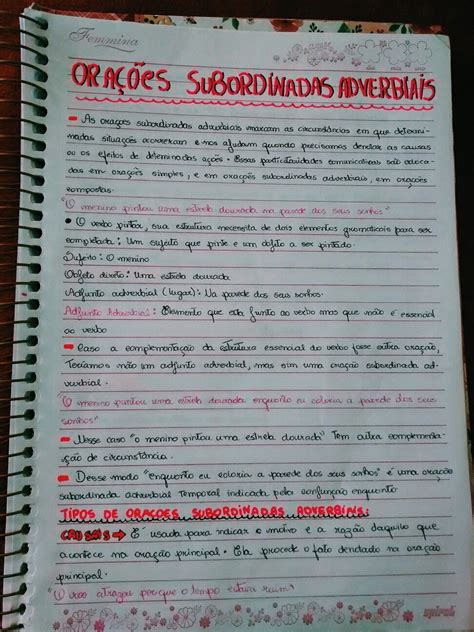 Femmina
ORAÇÕES SUBORDINADAS ADVERBIAIS
As orações subordinadas adverbiais marcam as circunstâncias em que determi-
nadas situações ocorreram e nos ajudam quando precisamos denotar as causas
ou os efeitos de determinadas ações. Essas particularidades comunicativas são
das em orações simples, e em orações subordinadas adverbiais, em orações
compostas.
"O menino pintou uma estrela dourada na parede dos seus sonhos"
• O verbo pintar, sua estrutura necesita de dois elementos gramaticais para ser
completada: Um sujeito que pinte e um objeto a ser pintado.
Sujeito: O menino
Objeto direto: Uma estrela dourada
Adjunto adverbial (lugar): Na parede dos seus sonhos.
Adjunto Adverbial: Elemento que está junto ao verbo mas que não é essencial
ao verbo
Caso a complementação da estrutura essencial do verbo fosse outra oração,
Teríamos não um adjunto adverbial, mas sim uma oração subordinada ad-
verbial.
"O menino pintou uma estrela dourada enquanto eu coloria a parede dos seus
sonhos"
Nesse caso "o menino pintou uma estrela dourada" Tem outra complementa-
ção de circunstância.
Desse modo "enquanto eu coloria a parede dos seus sonhos" é uma oração
subordinada adverbial Temporal indicada pela conjunção enquanto
TIPOS DE ORAÇÕES SUBORDINADAS ADVERBIAIS:
CAUSAIS → É usada para indicar o motivo e a razão daquilo que
acontece na oração principal. Ela precede o fato denotado na oração
principal.
"O voo atrazou porque o tempo estava ruim"
spiral